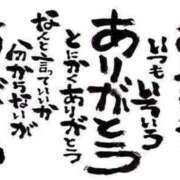 いつもいろいろ
ありがとう
とにかくありがとう
なんと言っていいか
分からないが